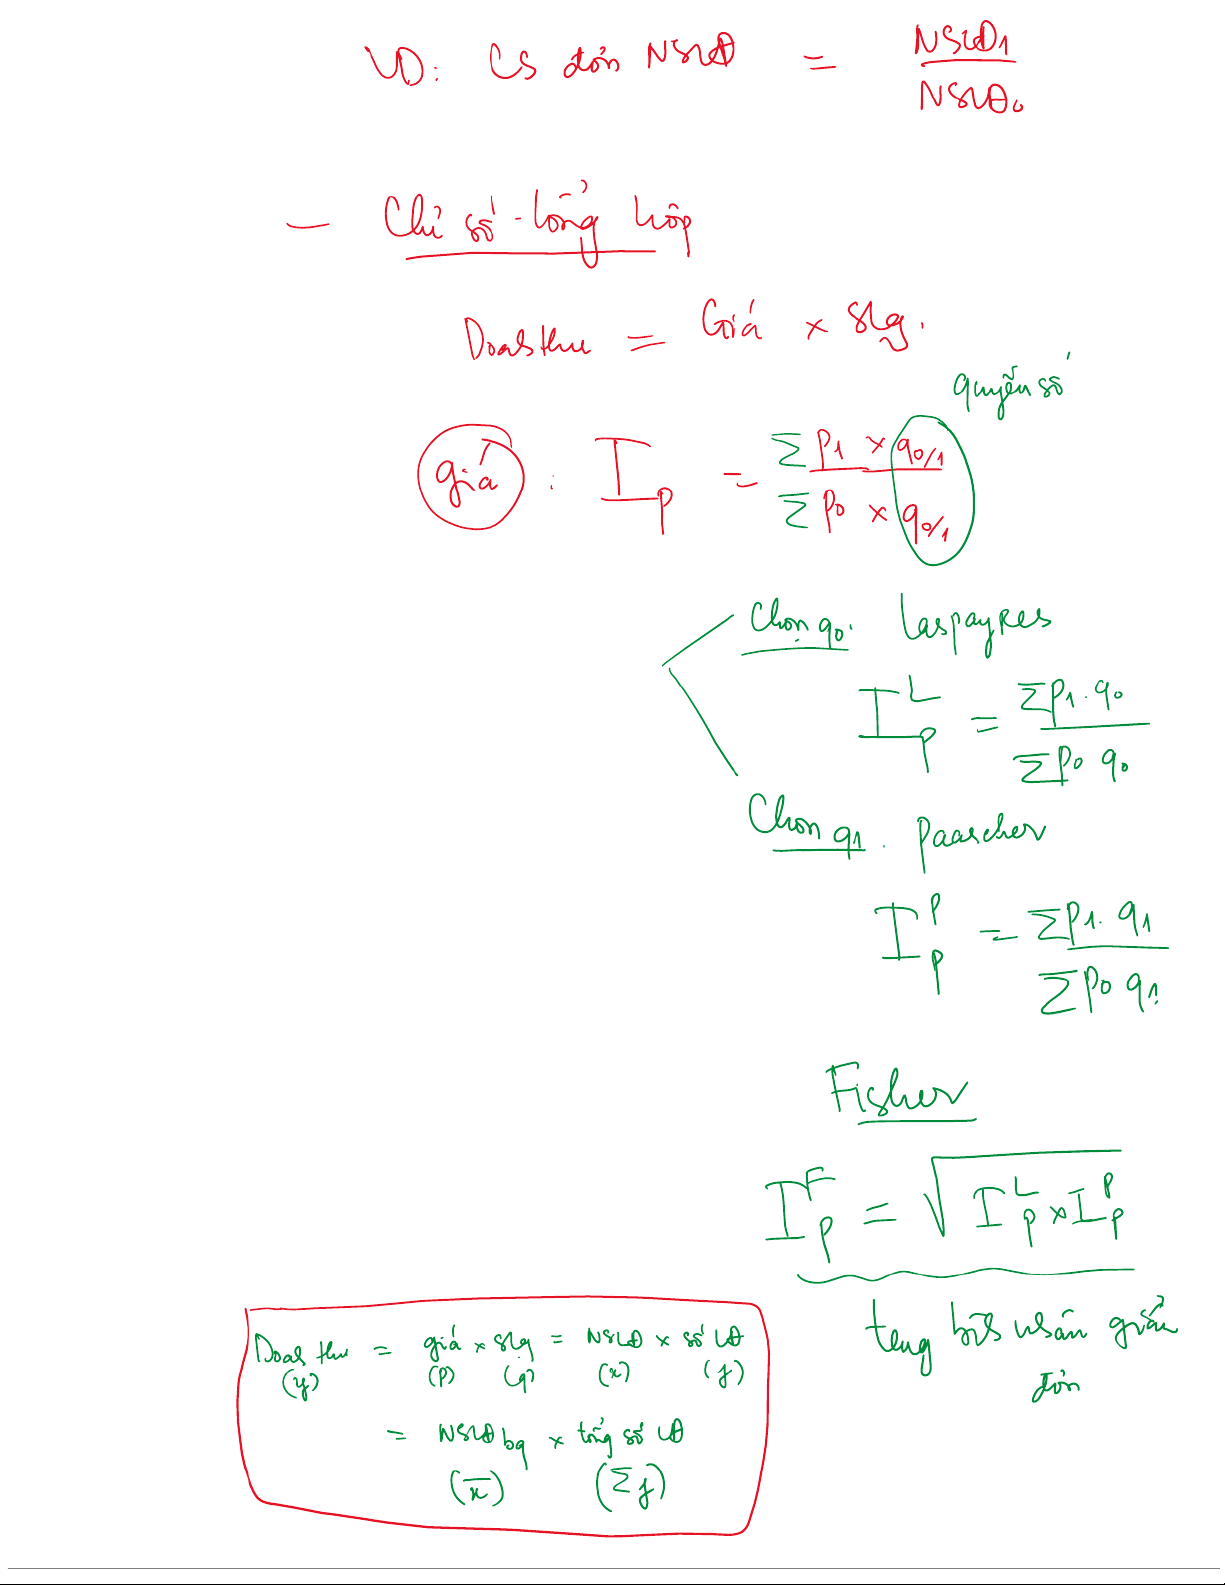 VD: CS đơn NSLĐ = NSLĐ1 / NSLĐ0
— Chỉ số tổng hợp
Doanh thu = Giá × slg.
quyền số
giá : Ip = Σ p1 × q0/1 / Σ p0 × q0/1
Chọn q0. Laspayres
I_p^L = Σp1.q0 / Σp0 q0
Chọn q1. Paascher
I_p^P = Σp1.q1 / Σp0 q1
Fisher
I_p^F = √(I_p^L × I_p^P)
trung bình nhân giản
đơn
Doanh thu = giá × slg = NSLĐ × số LĐ
(y) (p) (q) (x) (f)
= NSLĐ bq × tổng số LĐ
(x̄) (Σf)